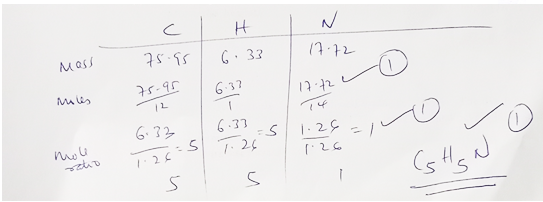 C H N
Mass 75.95 6.33 17.72
Moles 75.95/12 6.33/1 17.72/14 ✓ ①
Mole ratio 6.33/1.26 = 5 6.33/1.26 = 5 1.26/1.26 = 1 ✓ ①
5 5 1 C5H5N ✓ ①